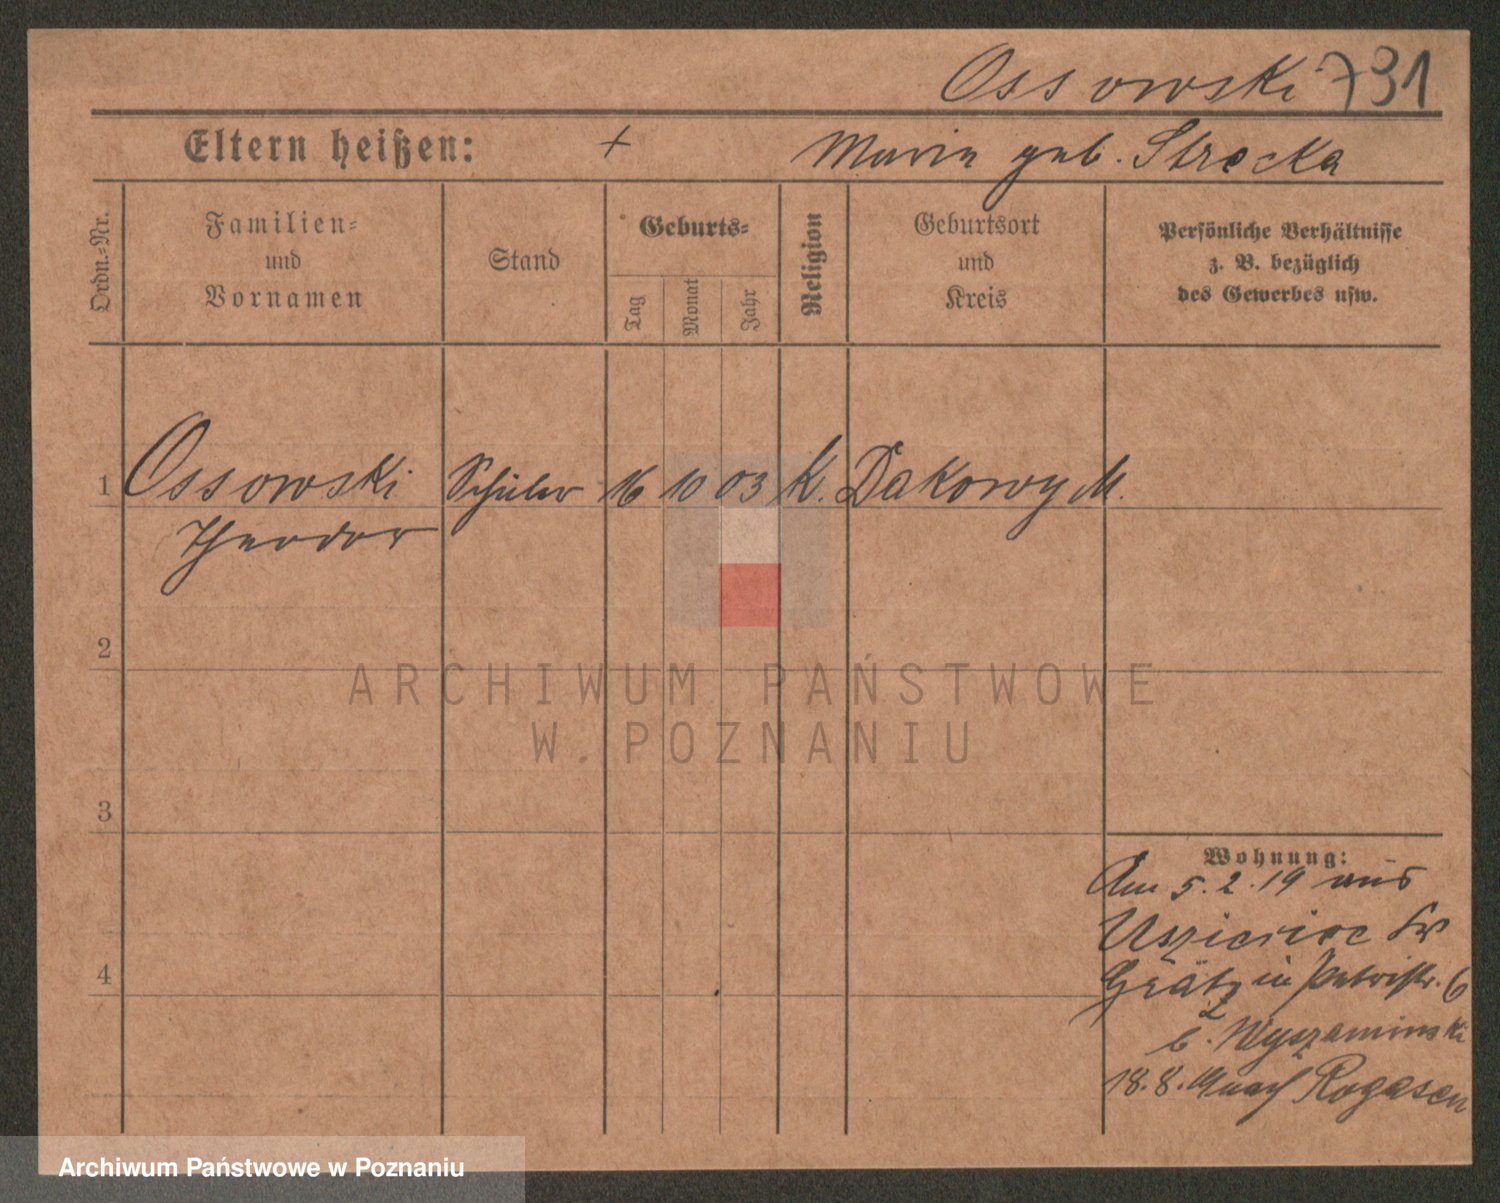 Ossowski 731
Eltern heißen: + Maria geb. Strocka
Ordn.-Nr.
Familien-
und
Vornamen
Stand
Geburts-
Tag
Monat
Jahr
Religion
Geburtsort
und
Kreis
Persönliche Verhältnisse
z. B. bezüglich
des Gewerbes usw.
1 Ossowski Schüler 16 10 03 K. Dakowy M.
Theodor
2
ARCHIWUM PAŃSTWOWE
W POZNANIU
3
Wohnung:
Am 5.2.19 aus
Kr
4
Grätz in Petristr. 6
b.
18.8.19 nach Rogasen
Archiwum Państwowe w Poznaniu